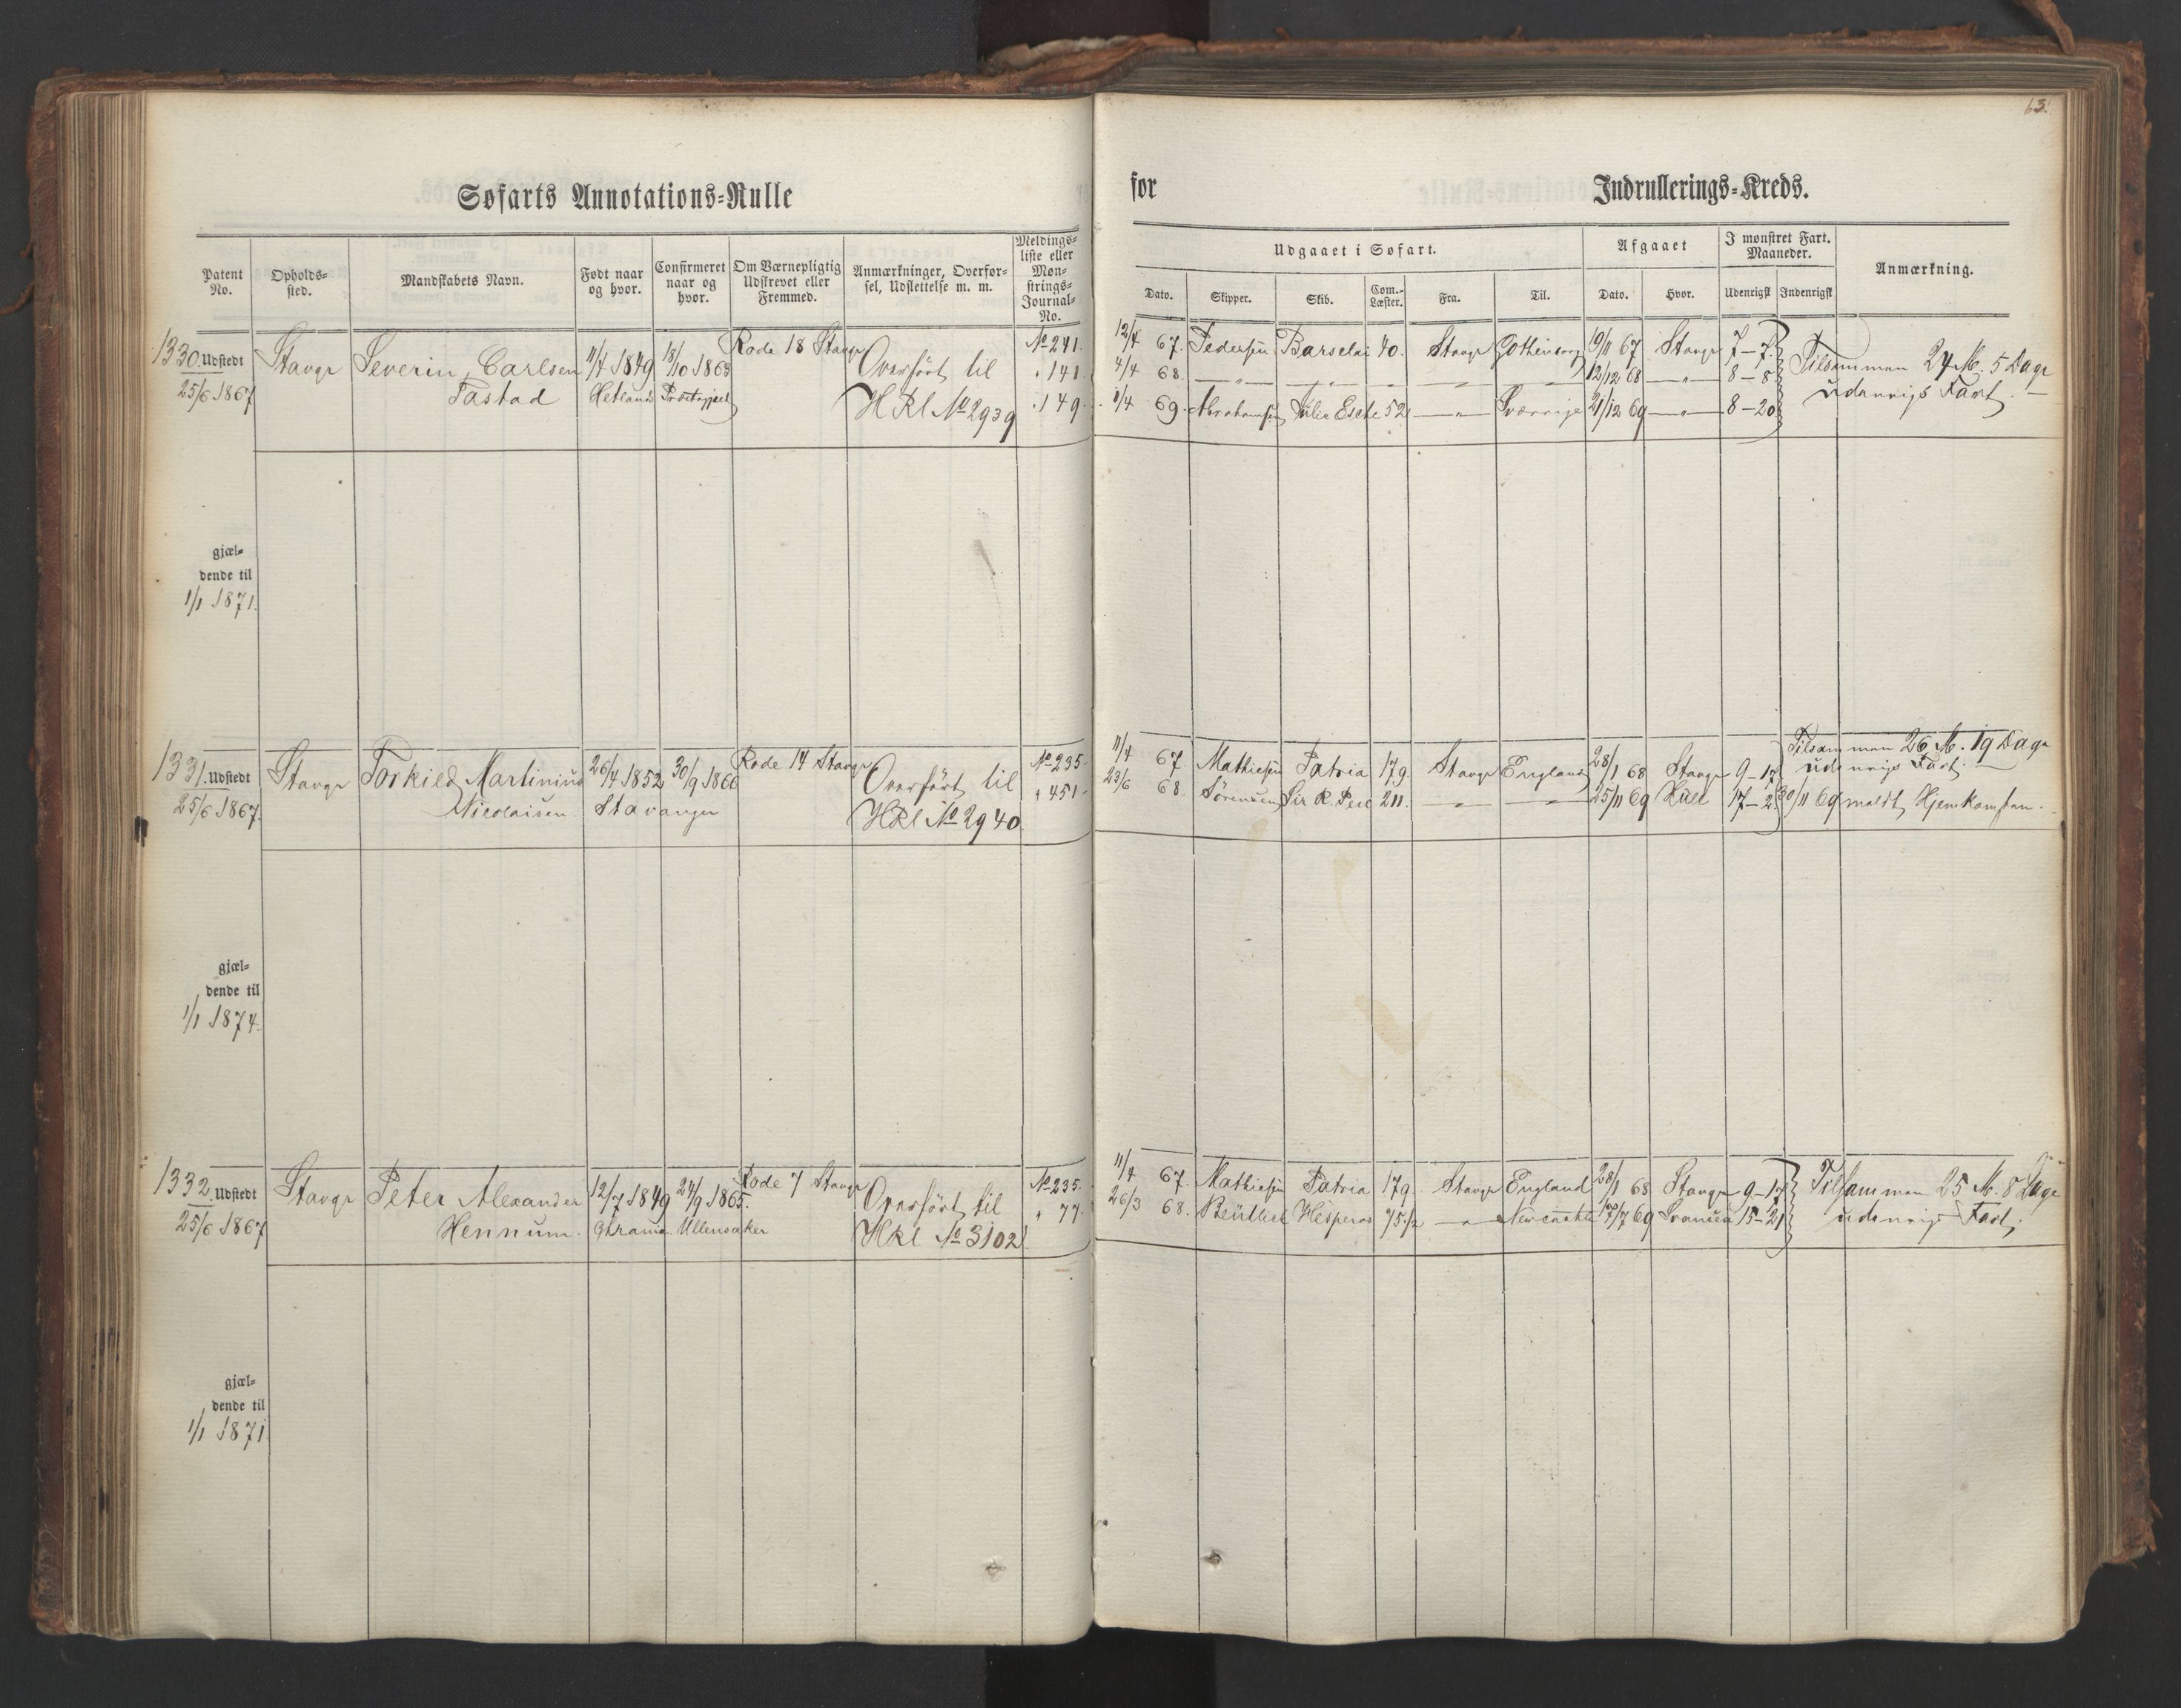 63.
Søfarts Annotations-Rulle
for Indrullerings-Kreds.
Patent No.
Opholds-sted.
Mandskabets Navn.
Født naar og hvor.
Confirmeret naar og hvor.
Om Værnepligtig Udskrevet eller Fremmed.
Anmærkninger, Overførsel, Udslettelse m. m.
Meldingsliste eller Mønstrings-Journal-No.
Udgaaet i Søfart.
Dato. Skipper. Skib. Com.-Læster. Fra. Til.
Afgaaet
Dato. Hvor.
I mønstret Fart. Maaneder.
Udenrigsk Indenrigsk
Anmærkning.
1330. Udstedt Stavgr Severin Carlsen 11/4 1849 18/10 1863 Rode 18 Stavgr Overført til No 241.
25/6 1867 Tastad Hetland HRl No 2939 " 141.
" 149.
12/4 67. Pedersen 40. Stavgr Gothenborg 19/11 67 Stavgr 7-7. Tilsammen 24 M. 5 Dage
4/4 68. — " — — " — — " — — " — — " — 12/12 68 — " — 8-8 udenrigs Fart.
1/4 69. Abrahamsen 52 — " — Sverrige 21/12 69 — " — 8-20
gjæl-
dende til
1/1 1871.
1331. Udstedt Stavgr Torkild Martinius 26/4 1852 30/9 1866 Rode 14 Stavgr Overført til No 235.
25/6 1867. Nicolaisen Stavanger HRl No 2940. " 451.
11/4 67. Mathiesen Patria 179. Stavgr England 28/1 68 Stavgr 9-17 Tilsammen 26 M. 19 Dage
udenrigs Fart.
23/6 68. Sørensen Sir R. Peel 211. — " — — " — 25/11 69 Hull 17-2. 30/11 69 meldt Hjemkomsten.
gjæl-
dende til
1/1 1874.
1332. Udstedt Stavgr Peter Alexander 12/7 1849 24/9 1865. Rode 7 Stavgr Overført til No 235.
25/6 1867 Hennum. Chrania. Ullensaker HRl No 3102 " 77.
11/4 67. Mathiesen Patria 179. Stavgr England 28/1 68 Stavgr 9-17 Tilsammen 25 M. 8 Dage
26/3 68. Hesperos 75 1/2 — " — Newcastle 17/7 69 Svansea 15-21 udenrigs Fart.
gjæl-
dende til
1/1 1871